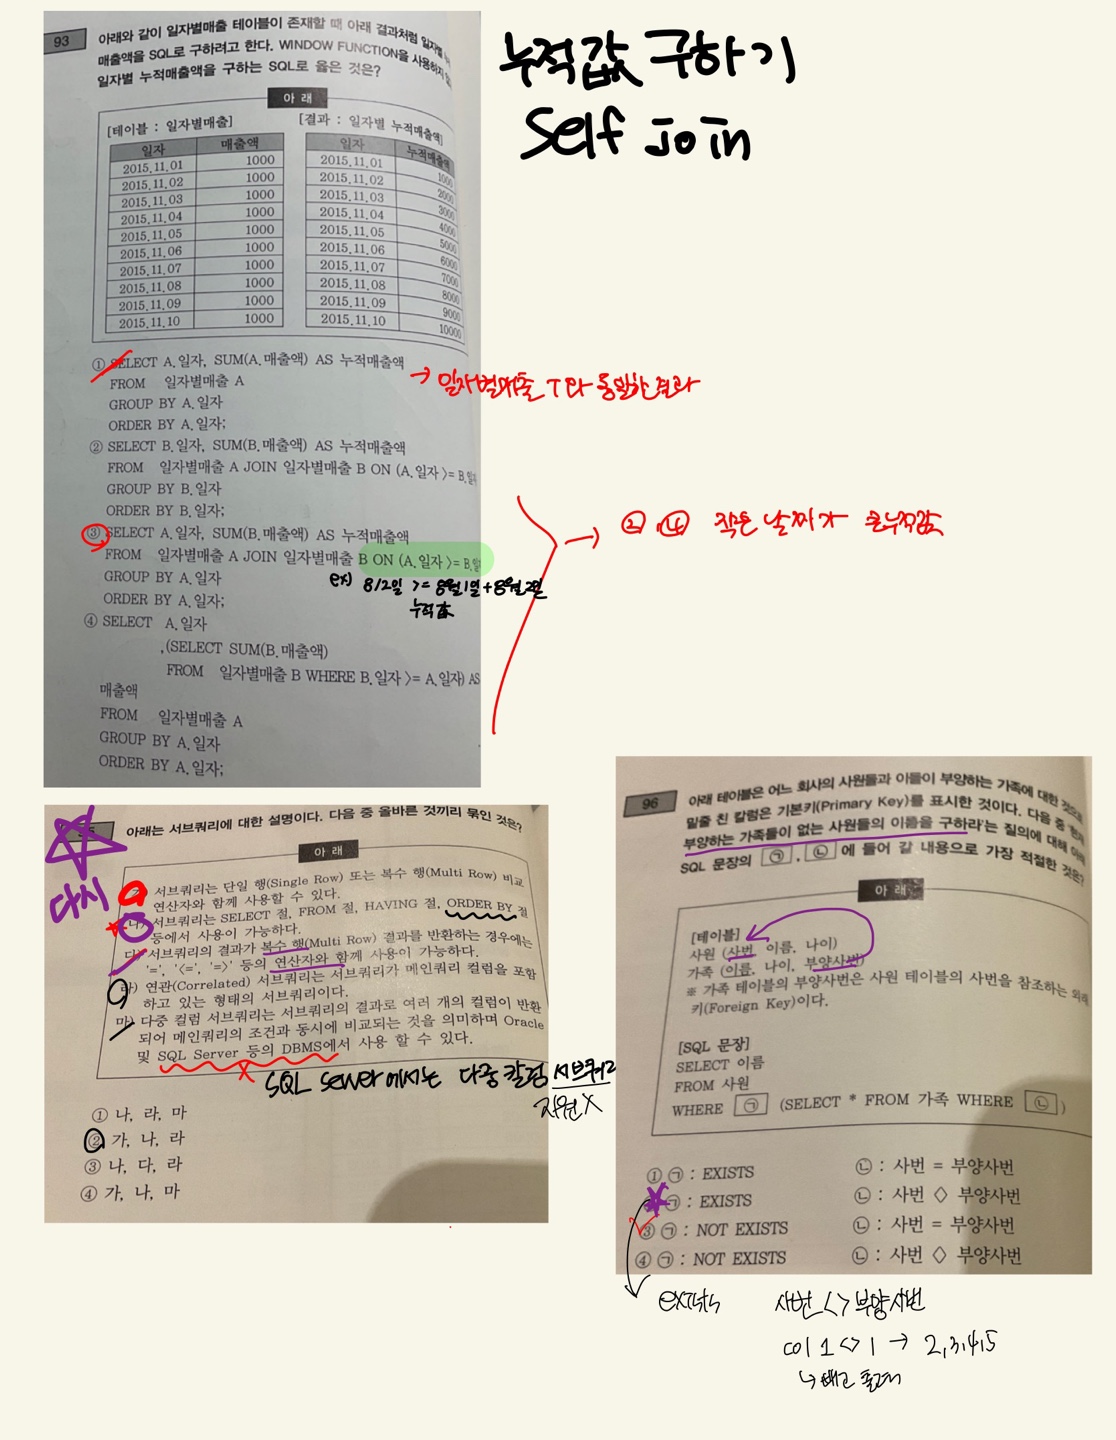 누적값 구하기
Self join
93
아래와 같이 일자별매출 테이블이 존재할 때 아래 결과처럼 일자별
매출액을 SQL로 구하려고 한다. WINDOW FUNCTION을 사용하지
일자별 누적매출액을 구하는 SQL로 옳은 것은?
아 래
[테이블 : 일자별매출] [결과 : 일자별 누적매출액]
일자 매출액 일자 누적매출액
2015.11.01 1000 2015.11.01 1000
2015.11.02 1000 2015.11.02 2000
2015.11.03 1000 2015.11.03 3000
2015.11.04 1000 2015.11.04 4000
2015.11.05 1000 2015.11.05 5000
2015.11.06 1000 2015.11.06 6000
2015.11.07 1000 2015.11.07 7000
2015.11.08 1000 2015.11.08 8000
2015.11.09 1000 2015.11.09 9000
2015.11.10 1000 2015.11.10 10000
① SELECT A.일자, SUM(A.매출액) AS 누적매출액
FROM 일자별매출 A
GROUP BY A.일자
ORDER BY A.일자;
→ 일자별매출 T와 동일한 결과
② SELECT B.일자, SUM(B.매출액) AS 누적매출액
FROM 일자별매출 A JOIN 일자별매출 B ON (A.일자 >= B.일자
GROUP BY B.일자
ORDER BY B.일자;
③ SELECT A.일자, SUM(B.매출액) AS 누적매출액
FROM 일자별매출 A JOIN 일자별매출 B ON (A.일자 >= B.일
GROUP BY A.일자
ORDER BY A.일자;
ex) 8/2일 >= 8월1일+8월2일
누적값
→ ② ④ 작은 날짜가 큰누적값
④ SELECT A.일자
,(SELECT SUM(B.매출액)
FROM 일자별매출 B WHERE B.일자 >= A.일자) AS
매출액
FROM 일자별매출 A
GROUP BY A.일자
ORDER BY A.일자;
다시
아래는 서브쿼리에 대한 설명이다. 다음 중 올바른 것끼리 묶인 것은?
아 래
서브쿼리는 단일 행(Single Row) 또는 복수 행(Multi Row) 비교
연산자와 함께 사용할 수 있다.
나) 서브쿼리는 SELECT 절, FROM 절, HAVING 절, ORDER BY 절
등에서 사용이 가능하다.
다) 서브쿼리의 결과가 복수 행(Multi Row) 결과를 반환하는 경우에는
'=', '<=', '=>' 등의 연산자와 함께 사용이 가능하다.
라) 연관(Correlated) 서브쿼리는 서브쿼리가 메인쿼리 컬럼을 포함
하고 있는 형태의 서브쿼리이다.
마) 다중 컬럼 서브쿼리는 서브쿼리의 결과로 여러 개의 컬럼이 반환
되어 메인쿼리의 조건과 동시에 비교되는 것을 의미하며 Oracle
및 SQL Server 등의 DBMS에서 사용 할 수 있다.
X SQL server에서는 다중칼럼 서브쿼리
지원X
① 나, 라, 마
② 가, 나, 라
③ 나, 다, 라
④ 가, 나, 마
96
아래 테이블은 어느 회사의 사원들과 이들이 부양하는 가족에 대한 것으로
밑줄 친 칼럼은 기본키(Primary Key)를 표시한 것이다. 다음 중 '현재
부양하는 가족들이 없는 사원들의 이름을 구하라'는 질의에 대해 아래
SQL 문장의 ㉠, ㉡ 에 들어 갈 내용으로 가장 적절한 것은?
아 래
[테이블]
사원 (사번, 이름, 나이)
가족 (이름, 나이, 부양사번)
※ 가족 테이블의 부양사번은 사원 테이블의 사번을 참조하는 외래
키(Foreign Key)이다.
[SQL 문장]
SELECT 이름
FROM 사원
WHERE ㉠ (SELECT * FROM 가족 WHERE ㉡)
① ㉠ : EXISTS ㉡ : 사번 = 부양사번
㉠ : EXISTS ㉡ : 사번 <> 부양사번
③ ㉠ : NOT EXISTS ㉡ : 사번 = 부양사번
④ ㉠ : NOT EXISTS ㉡ : 사번 <> 부양사번
exists 사번 <> 부양사번
col 1 <> 1 → 2,3,4,5
↳ 빼고 출력